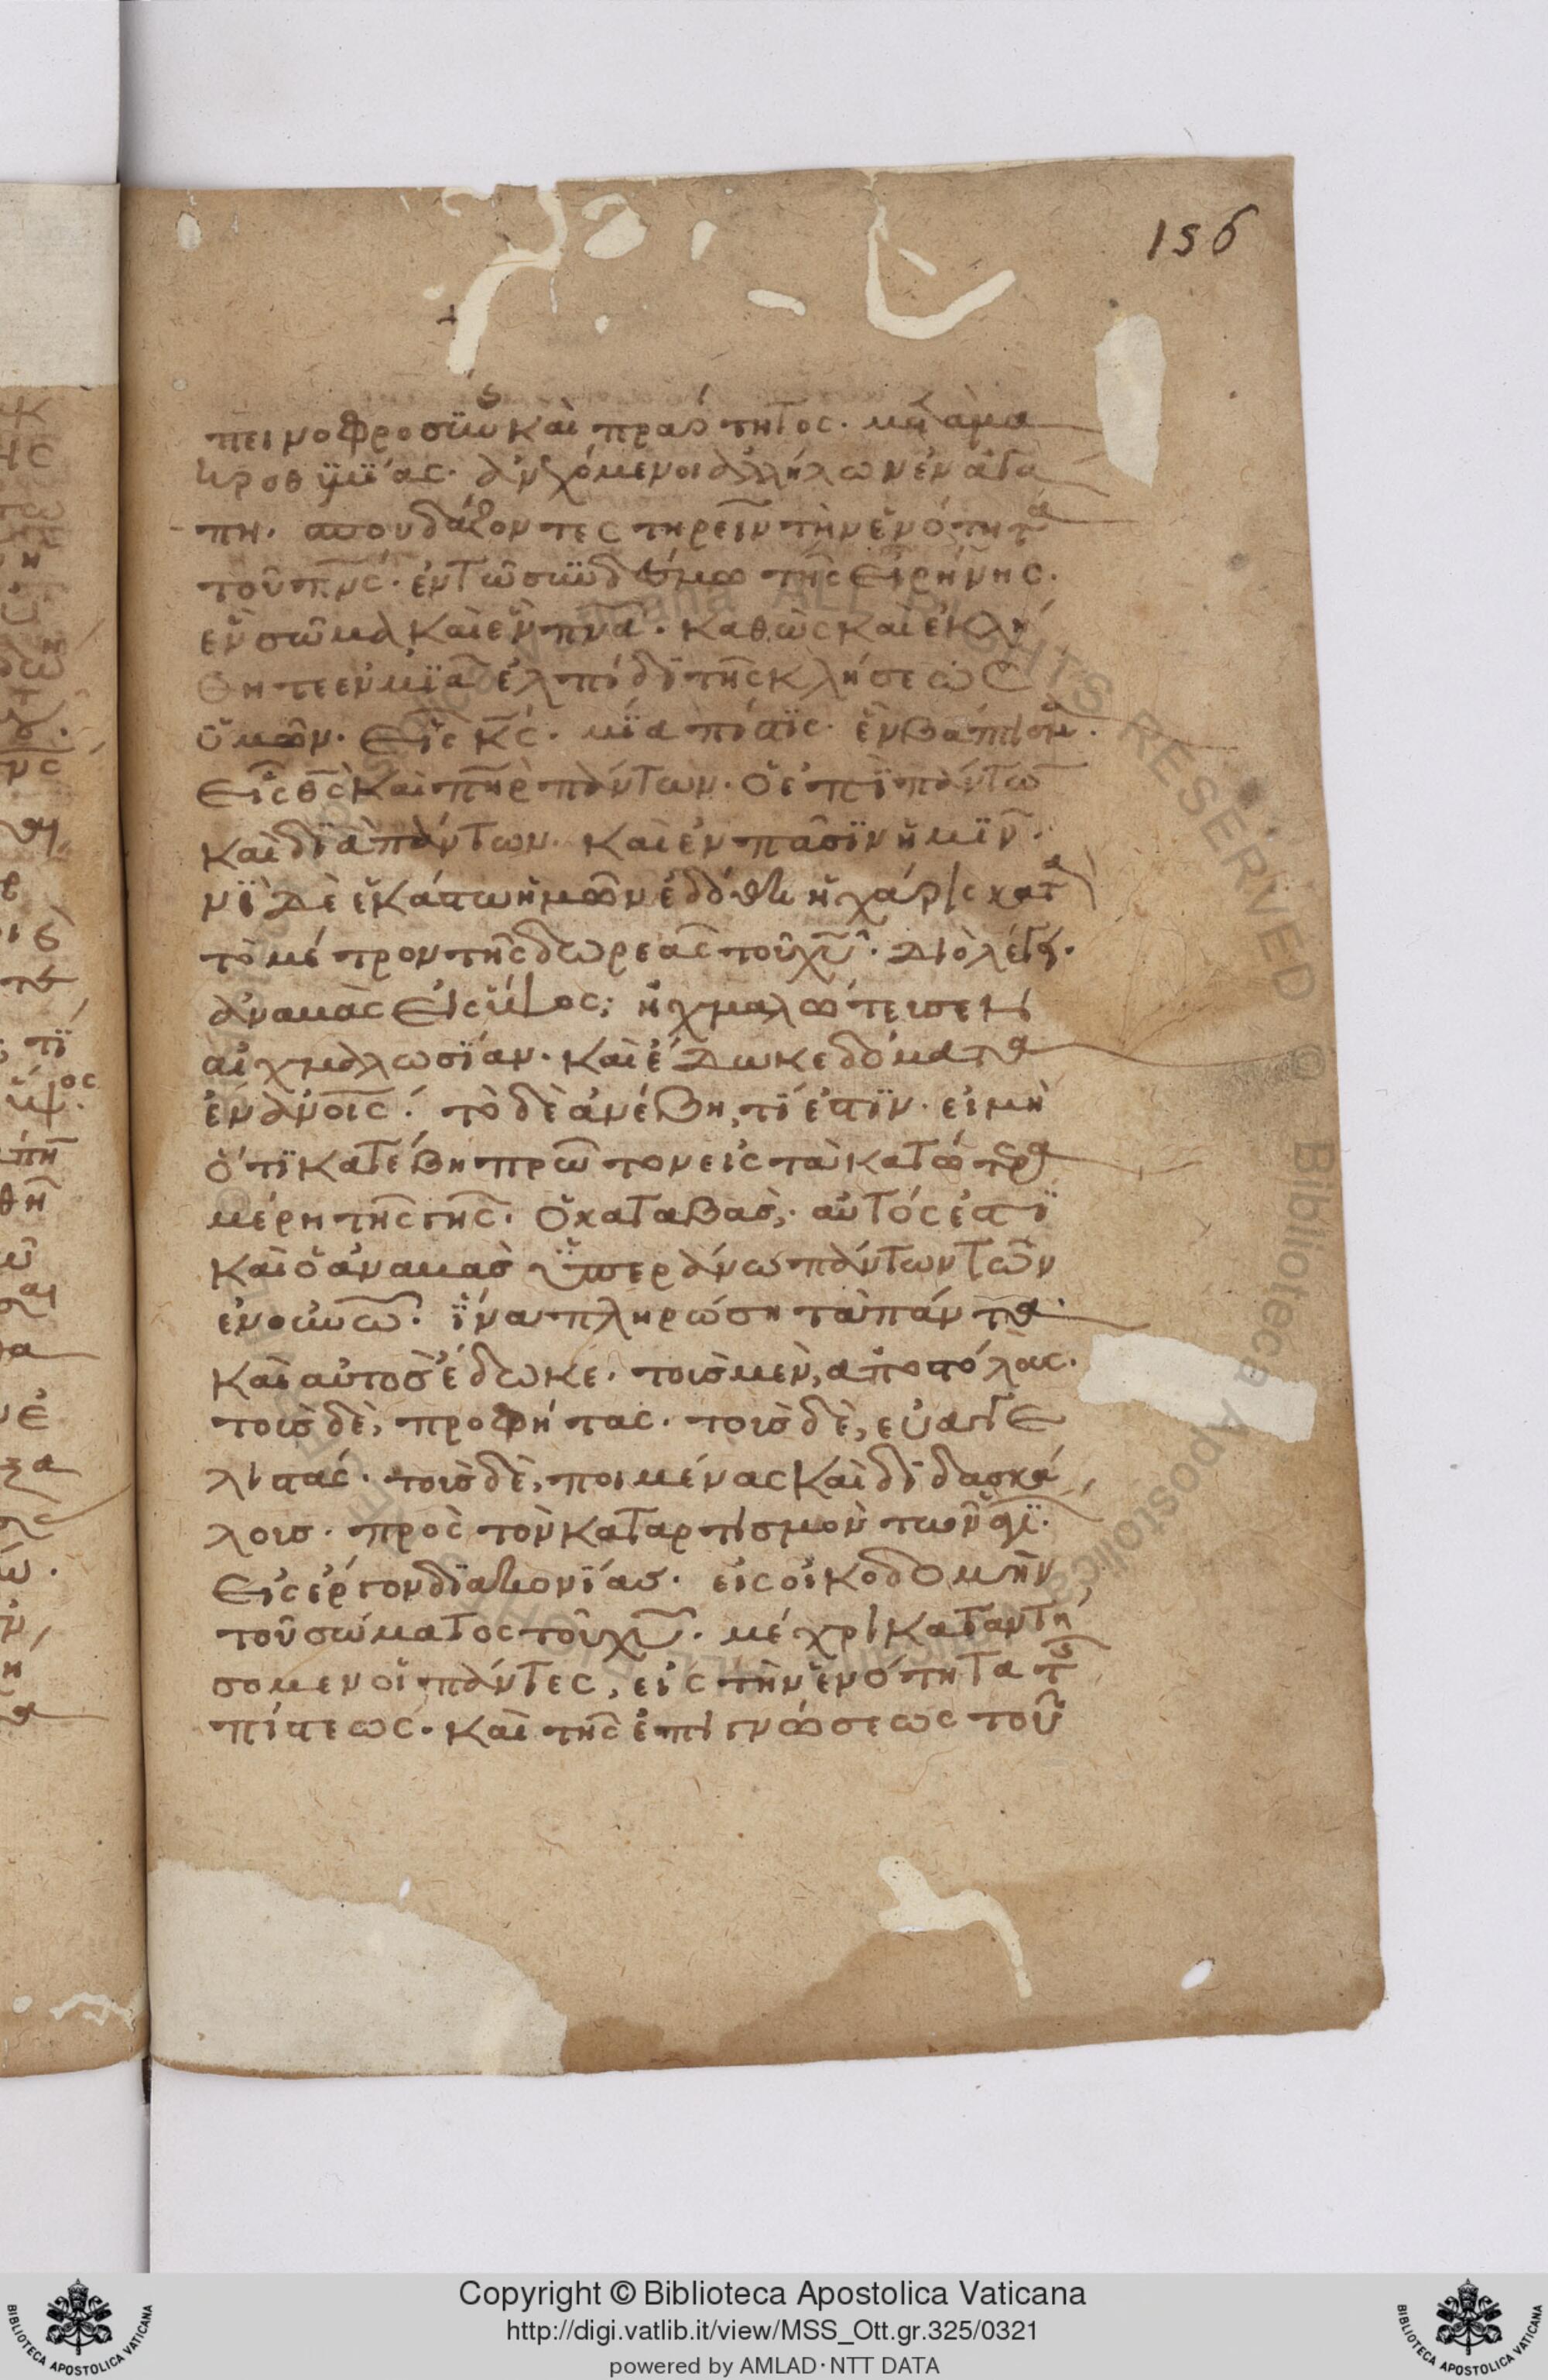 156
πεινοφροσύν καὶ πραότητος. μετὰ μα
κροθυμίας. ἀνεχόμενοι ἀλλήλων ἐν ἀγά
πη. σπουδάζοντες τηρεῖν τὴν ἑνότητα
τοῦ πνς. ἐν τῶ συνδέσμω τῆς εἰρήνης.
ἓν σῶμα καὶ ἓν πνα. καθὼς καὶ ἐκλή
θητε ἐν μϊᾶ ἐλπίδϊ τῆς κλήσεως
ὑμῶν. εἷς κς. μϊα πίστϊς. ἓν βάπτισμ.
εἷς θς καὶ πηρ πάντων. ὁ ἐπϊ πάντω
καὶ δϊὰ πάντων. καὶ ἐν πᾶσϊν ἡμϊν.
νϊ δὲ ἑκάστω ἡμῶν ἐδόθη ἡ χάρις κατὰ
τὸ μέτρον τῆς δωρεᾶς τοῦ χυ. διὸ λέγει.
ἀναβὰς εἰς ὕψος; ἠχμαλώτευσεν
αἰχμαλωσΐαν. καὶ ἔδωκε δόματα
ἐν ἀνοις. τὸ δὲ ἀνέβη, τί ἐστϊν. εἰ μὴ
ὅτϊ κατέβη πρῶτον εἰς τὰ κατώτερα
μέρη τῆς γῆς. ὁ καταβασ, αὐτός ἐστϊ
καὶ ὁ ἀναβασ ὑπερἀνω πάντων τῶν
ἐνοὐνω. ἵνα πληρώση τὰ πάντα.
καὶ αὐτοσ ἔδωκε. τουσ μεν, ἀποστόλους.
τουσ δὲ, προφήτας. τουσ δὲ, εὐαγγε
λιστάς. τουσ δὲ, ποιμένας καὶ διδασκά
λουσ. πρὸς τὸν καταρτισμὸν τῶν ἁγϊ.
εἰς ἔργον δϊακονΐασ. εἰς οἰκοδομὴν
τοῦ σώματος τοῦ χυ. μέχρι καταντή
σομεν οἱ πάντες, εἰς τὴν ἑνότητα τ
πίστεως. καὶ τῆς ἐπιγνώσεως τοῦ
ALL RIGHTS RESERVED © Biblioteca Apostolica
Copyright © Biblioteca Apostolica Vaticana
http://digi.vatlib.it/view/MSS_Ott.gr.325/0321
powered by AMLAD·NTT DATA
BIBLIOTECA APOSTOLICA VATICANA
BIBLIOTECA APOSTOLICA VATICANA